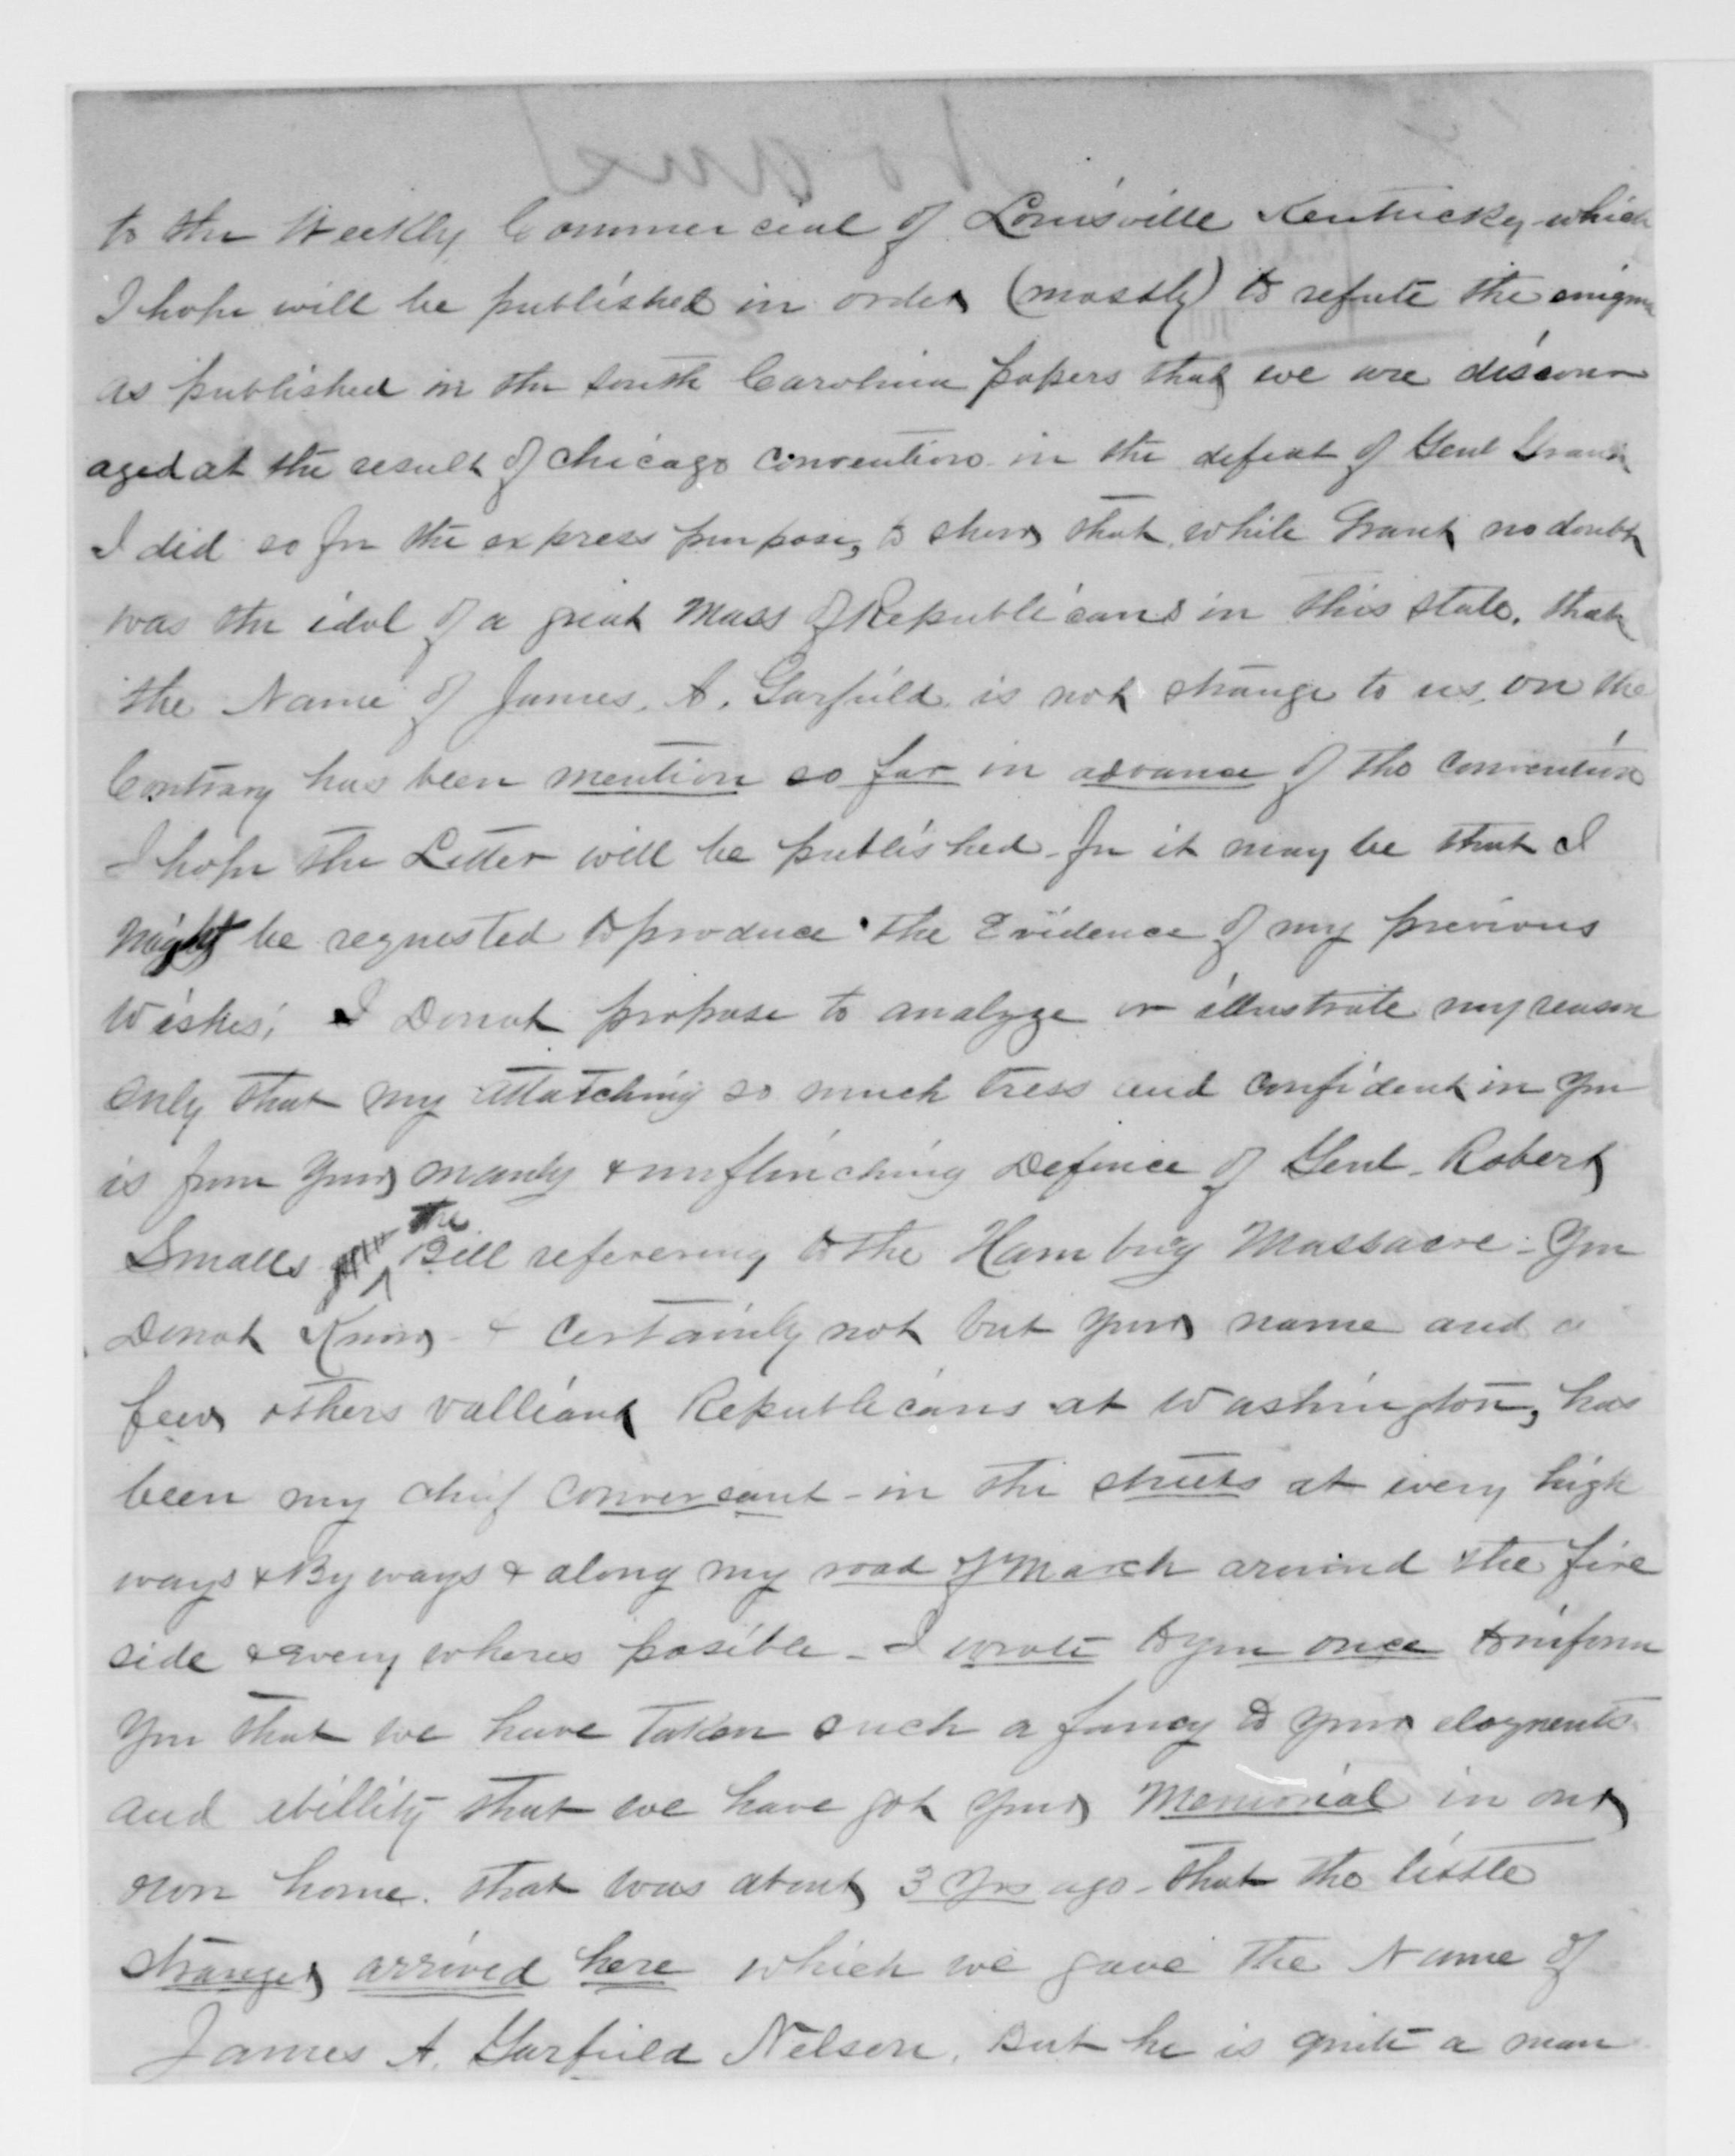 to the Weekly Commercial of Louisville Kentucky which
I hope will be published in order (mostly) to refute the enigma
as published in the South Carolina papers that we are discour
aged at the result of Chicago Convention in the defeat of Genl Grant
I did so for the express purpose, to show that while Grant no doubt
was the idol of a great Mass of Republicans in this State. that
the Name of James. A. Garfield is not strange to us, on the
Contrary has been mention so far in advance of the convention
I hope the Letter will be published for it may be that I
might be requested to produce the Evidence of my previous
Wishes; I Donot propose to analyze or illustrate my reason
only that my attatching so much tress and confident in you
is from your manly & unflinching Defence of Genl. Robert
Smalls the Bell referering to the Hamburg Massacre - You
Donot Know - & certainly not but your name and a
few others valliant Republicans at Washington, has
been my chief conversant - in the streets at every high
ways & By ways & along my road of March around the fire
side & every wheres posible - I wrote to you once to inform
you that we have taken such a fancy to your eloquents
and ibillity that we have got your Memorial in our
own home. that was about 3 yrs ago - that the little
stranger arrived here which we gave the Name of
James A. Garfield Nelson. But he is quite a man